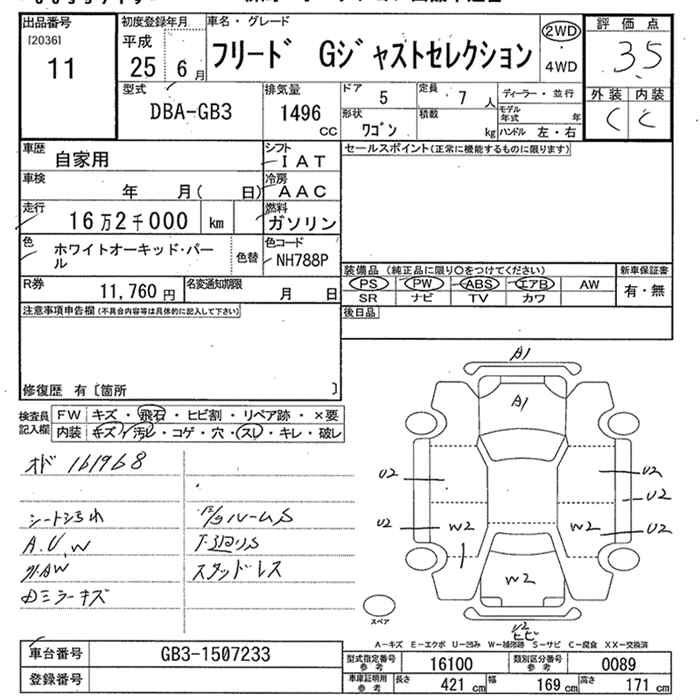 出品番号 初度登録年月 車名・グレード 評価点
[2036]
11
平成
25 6月
フリード Gジャストセレクション
2WD
・
4WD
3.5
型式 排気量 ドア 5 定員 7人 ディーラー・並行 外装 内装
DBA-GB3 1496 CC 形状 ワゴン 積載 kg モデル年式 年 C C
ハンドル 左・右
車歴 自家用 シフト IAT セールスポイント(正常に機能するものに限ります)
車検 年 月( 日) 冷房 AAC
走行 16万2千000 km 燃料 ガソリン
色 ホワイトオーキッド・パール 色替 色コード NH788P
装備品(純正品に限り○をつけてください) 新車保証書
R券 11,760円 名変通知期限 月 日 PS PW ABS エアB AW 有・無
SR ナビ TV カワ
注意事項申告欄(不具合内容等は具体的に記入して下さい) 後日品
修復歴 有〔箇所 〕
検査員記入欄 FW キズ・飛石・ヒビ割・リペア跡・×要
内装 キズ・汚レ・コゲ・穴・スレ・キレ・破レ
161968
A.U,W
キズ
スタッドレス
A1
A1
U2 U2
U2
U2 W2 W2 U2
W2
U2
ヒビ
スペア
A-キズ E-エクボ U-凹み W-補修跡 S-サビ C-腐食 XX-交換済
車台番号 GB3-1507233 型式指定番号 参考 16100 類別区分番号 参考 0089
登録番号 車庫証明用 参考 長さ 421cm 幅 169cm 高さ 171cm